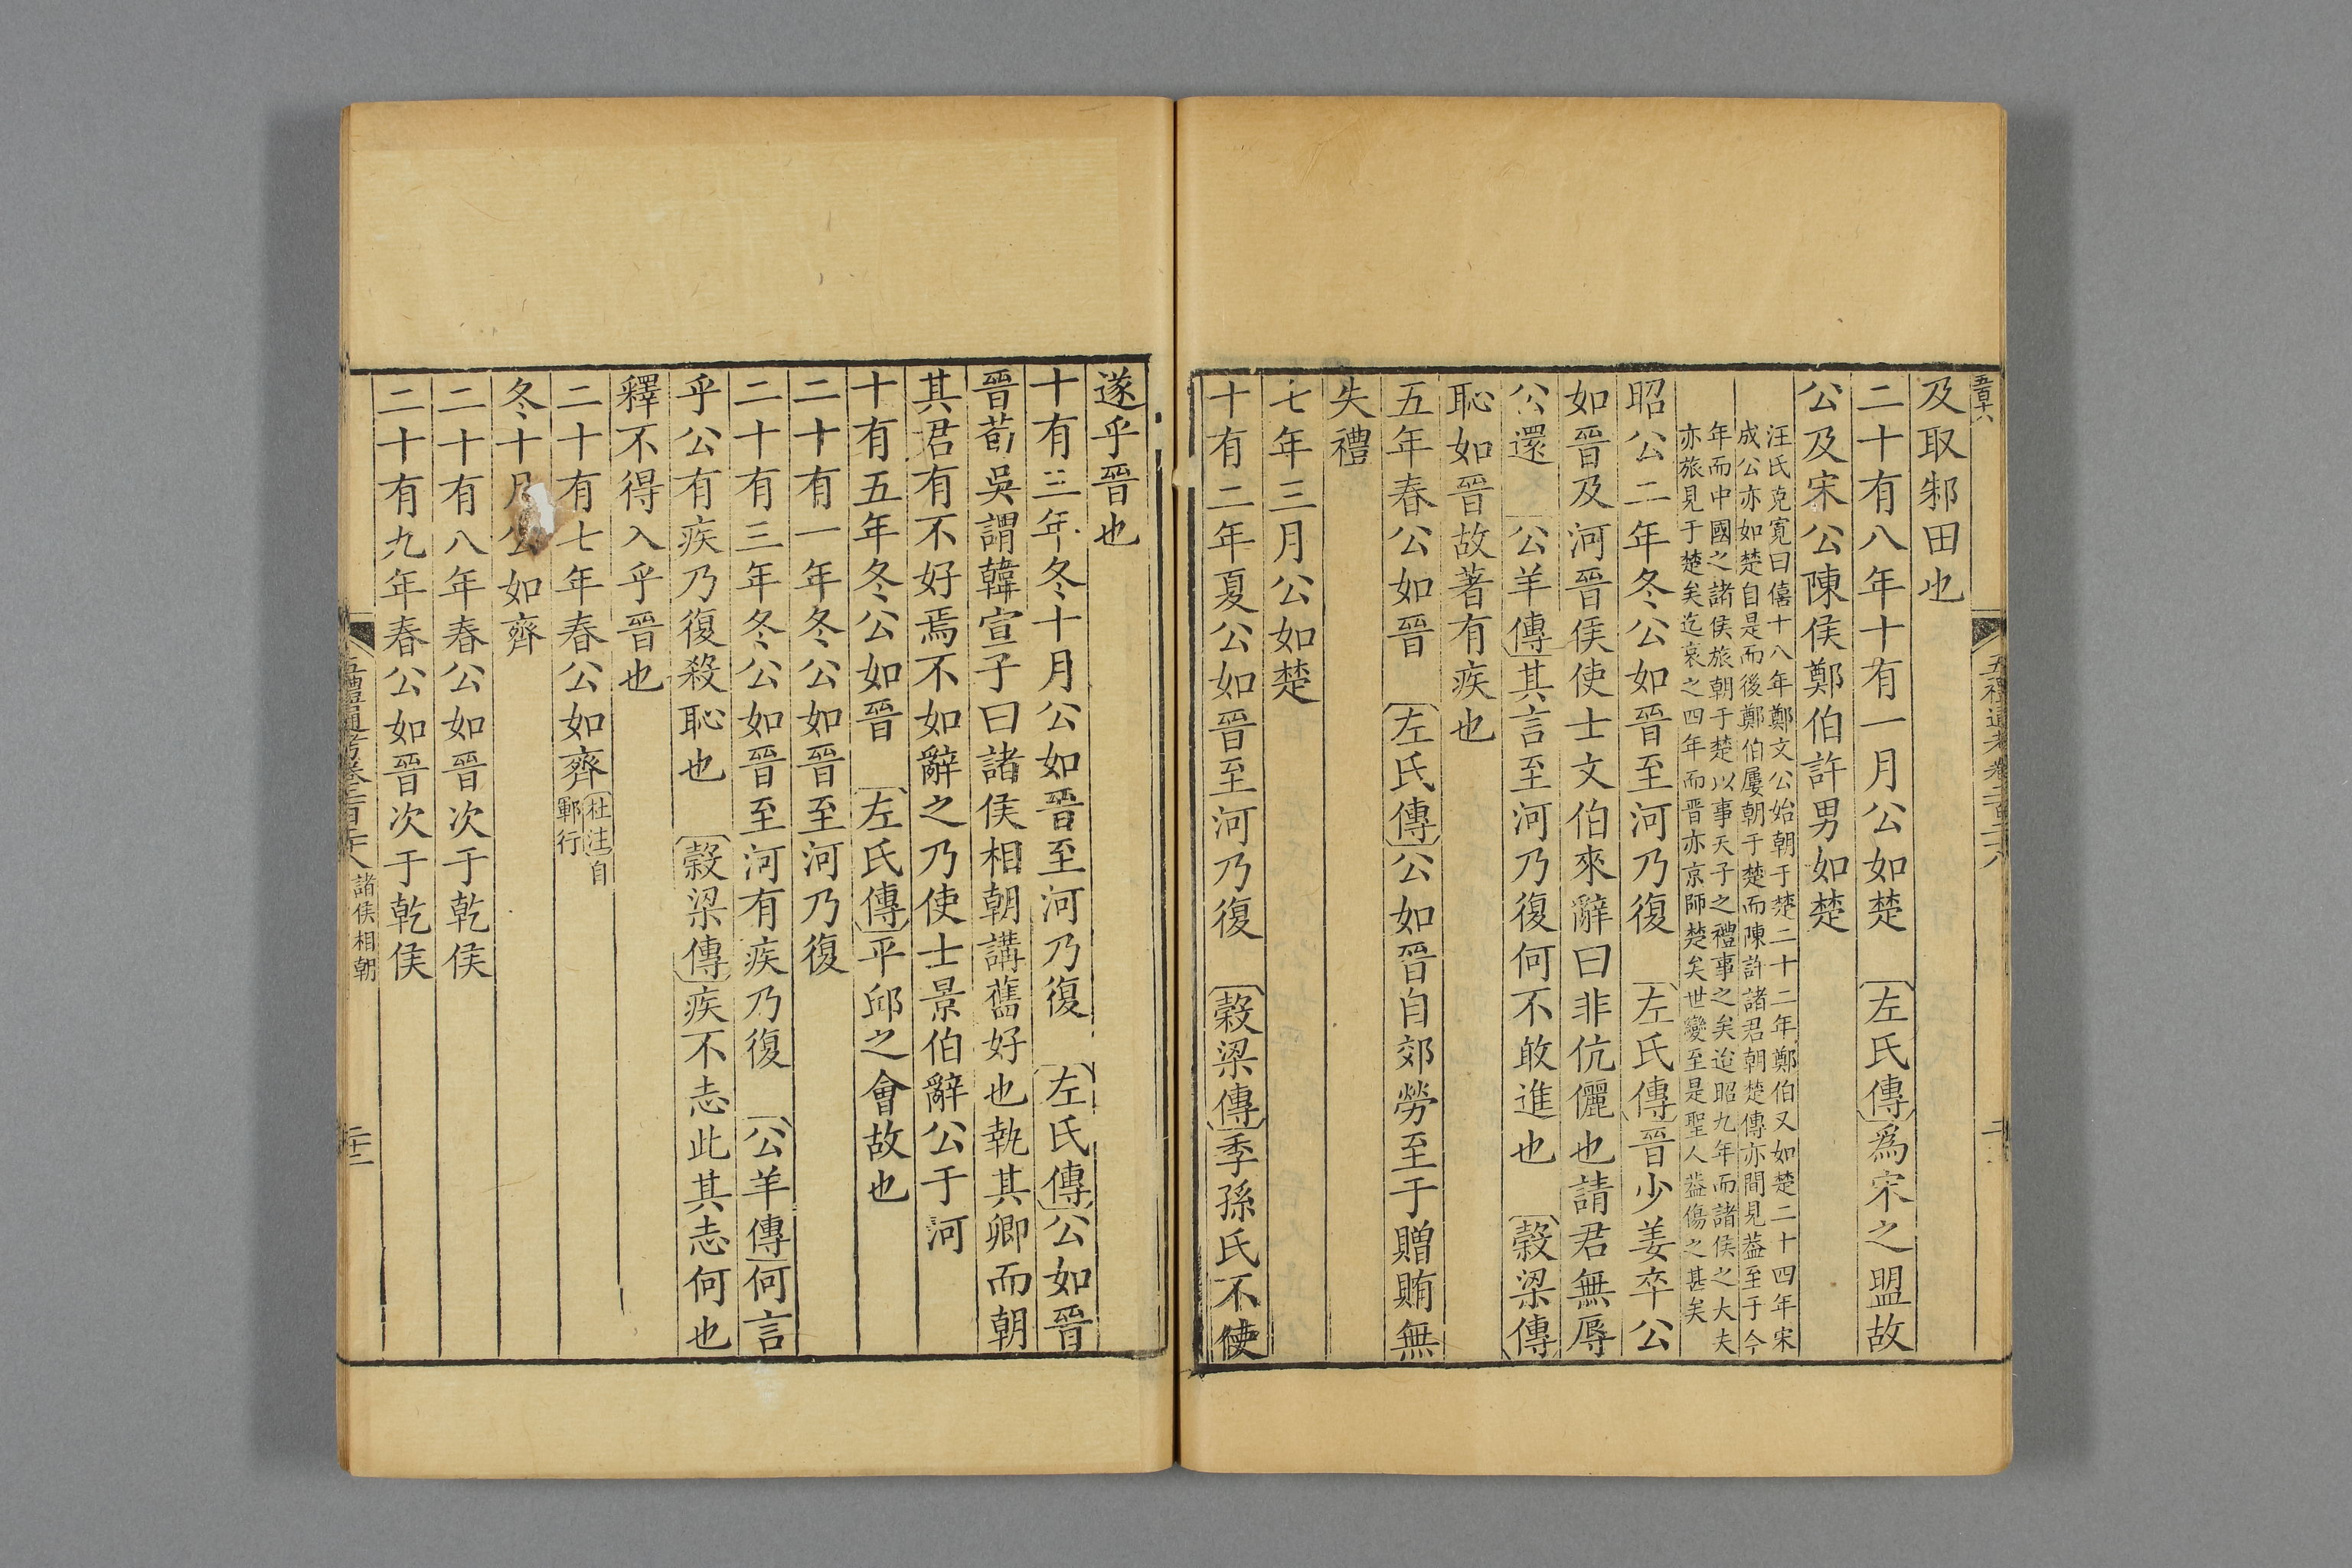 五百十八
五禮通考卷二百二十八
及取邾田也
二十有八年十有一月公如楚　左氏傳爲宋之盟故
公及宋公陳侯鄭伯許男如楚
汪氏克寬曰僖十八年鄭文公始朝于楚二十二年鄭伯又如楚二十四年宋
成公亦如楚自是而後鄭伯屢朝于楚而陳許諸君朝楚傳亦間見葢至于今
年而中國之諸侯旅朝于楚以事天子之禮事之矣迨昭九年而諸侯之大夫
亦旅見于楚矣迄哀之四年而晋亦京師楚矣世變至是聖人葢傷之甚矣
昭公二年冬公如晉至河乃復　左氏傳晉少姜卒公
如晉及河晉侯使士文伯來辭曰非伉儷也請君無辱
公還　公羊傳其言至河乃復何不敢進也　榖梁傳
恥如晉故著有疾也
五年春公如晉　左氏傳公如晉自郊勞至于贈賄無
失禮
七年三月公如楚
十有二年夏公如晉至河乃復　榖梁傳季孫氏不使
遂乎晉也
十有三年冬十月公如晉至河乃復　左氏傳公如晉
晉荀吳謂韓宣子曰諸侯相朝講舊好也執其卿而朝
其君有不好焉不如辭之乃使士景伯辭公于河
十有五年冬公如晉　左氏傳平邱之會故也
二十有一年冬公如晉至河乃復
二十有三年冬公如晉至河有疾乃復　公羊傳何言
乎公有疾乃復殺恥也　榖梁傳疾不志此其志何也
釋不得入乎晉也
二十有七年春公如齊杜注自
鄆行
冬十月公如齊
二十有八年春公如晉次于乾侯
二十有九年春公如晉次于乾侯
五禮通考卷二百二十八　諸侯相朝
二十二